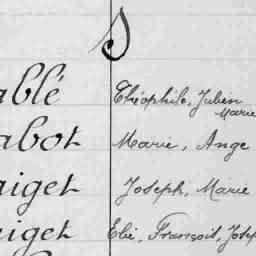 S
ablé Théophile, Julien
Marie
abot Marie, Ange
aiget Joseph, Marie
uiget Elie, François, Josep